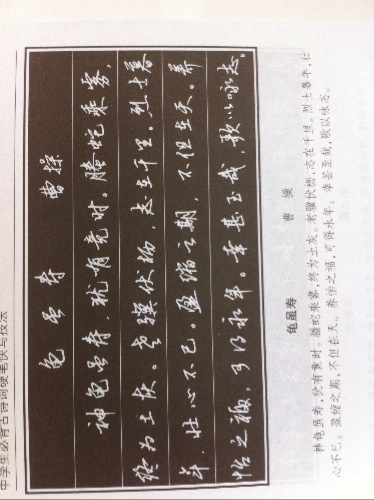 中学生必背古诗词硬笔快写技法
龟虽寿 曹操
神龟虽寿，犹有竟时。腾蛇乘雾，
终为土灰。老骥伏枥，志在千里。烈士暮
年，壮心不已。盈缩之期，不但在天。养
怡之福，可得永年。幸甚至哉，歌以咏志。
龟虽寿
曹 操
神龟虽寿，犹有竟时。腾蛇乘雾，终为土灰。老骥伏枥，志在千里。烈士暮年，壮
心不已。盈缩之期，不但在天。养怡之福，可得永年。幸甚至哉，歌以咏志。